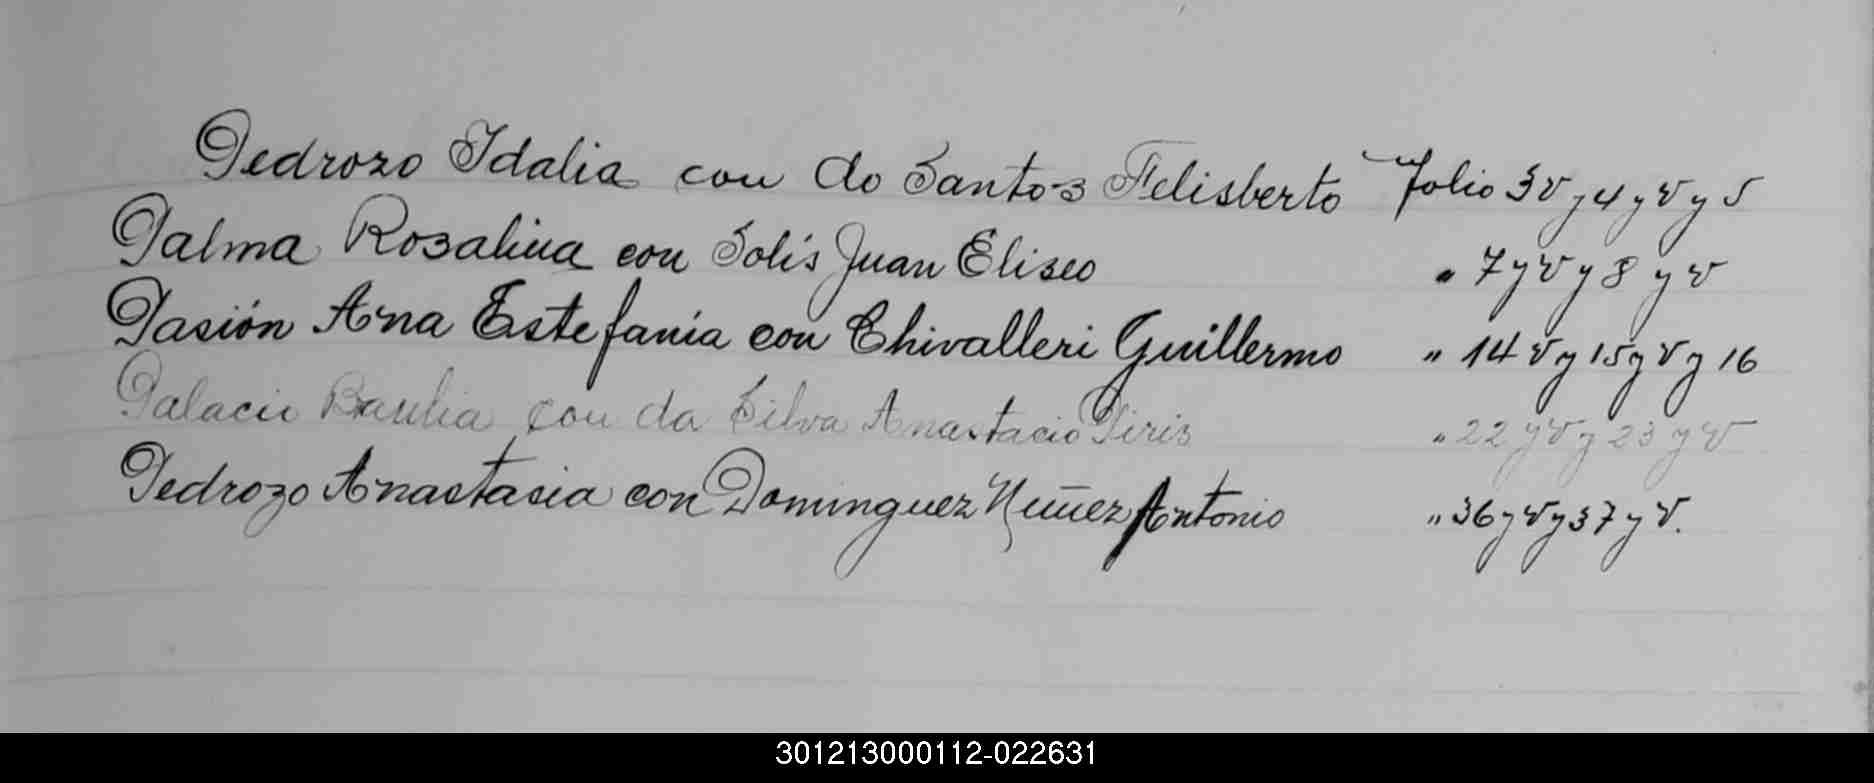 Pedrozo Idalia con do Santos Felisberto Folio 3 v y 4 y v y 5
Palma Rosalina con Solís Juan Eliseo " 7 y v y 8 y v
Pasión Ana Estefanía con Chivalleri Guillermo " 14 v y 15 y v y 16
Palacio Braulia con da Silva Anastacio Piris " 22 y v y 23 y v
Pedrozo Anastasia con Dominguez Nuñez Antonio " 36 y v y 37 y v.
301213000112-022631